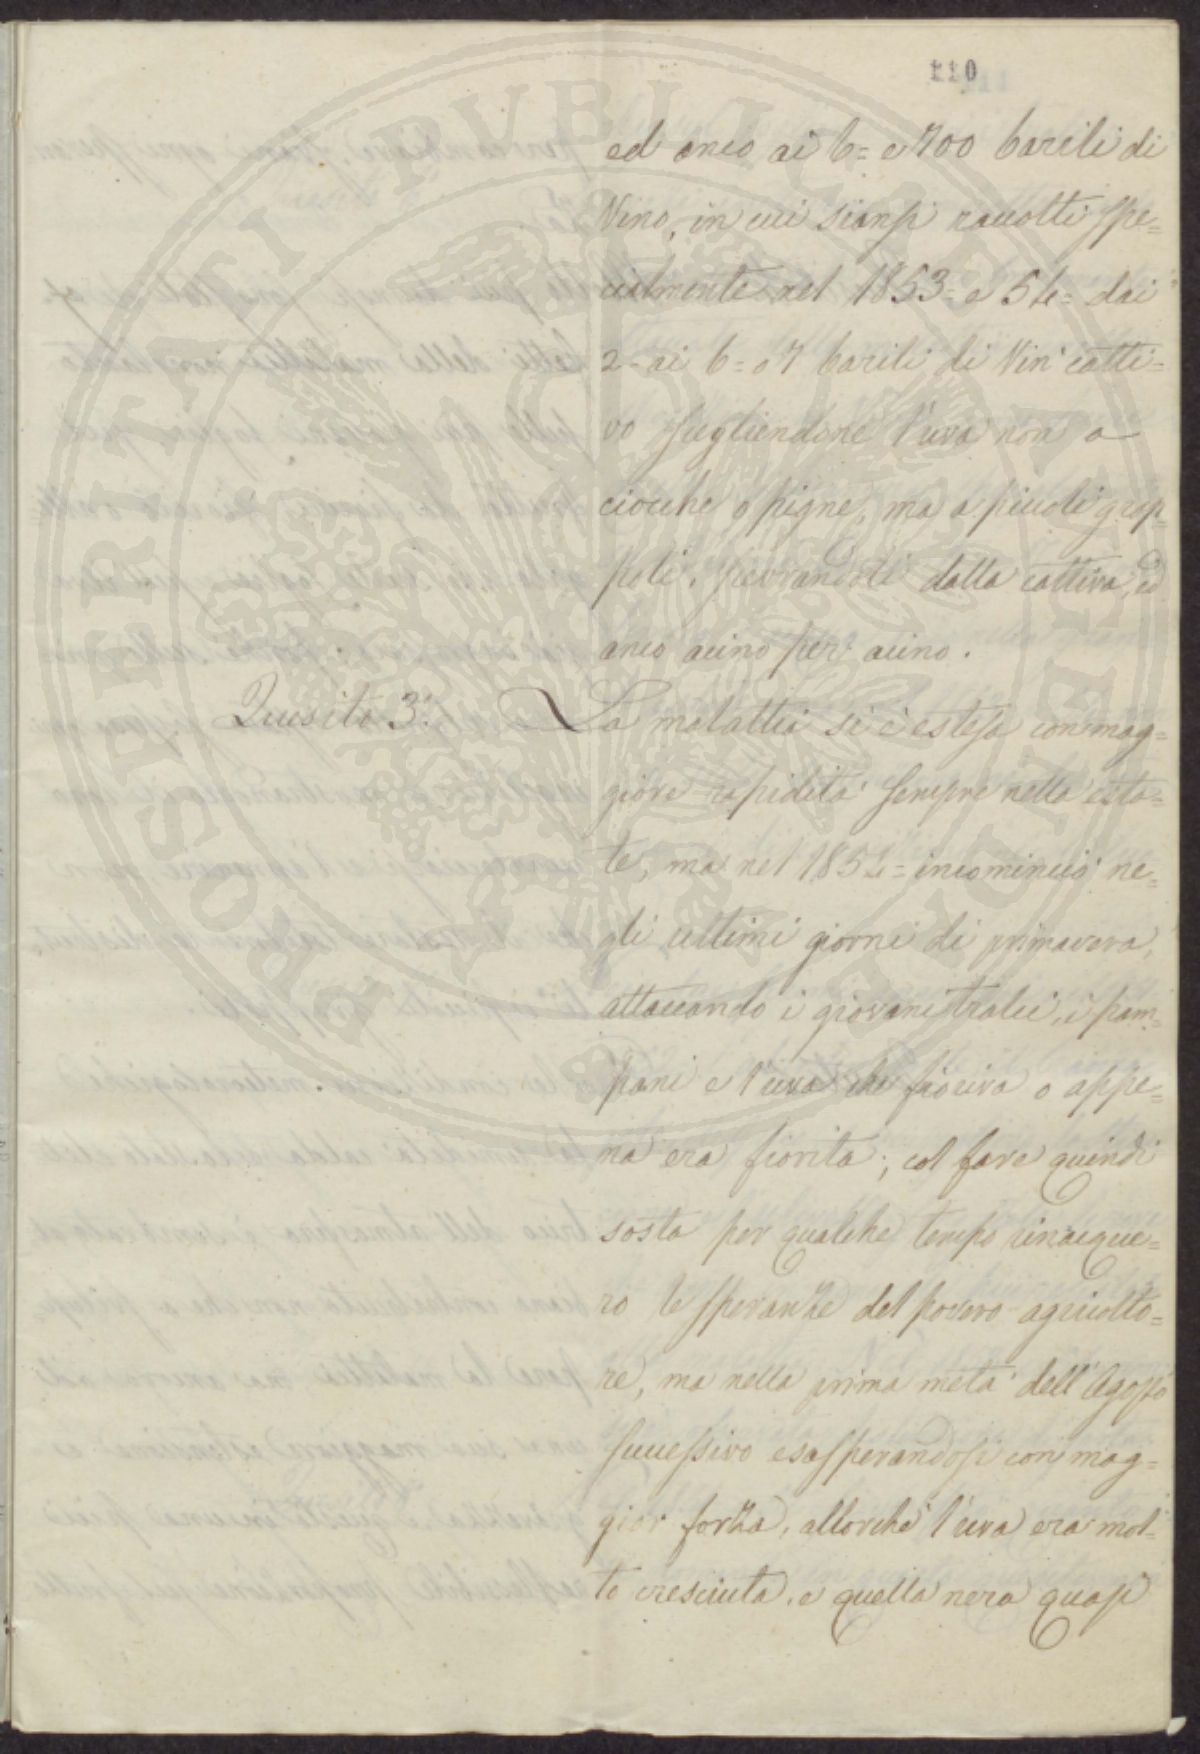 110
ed anco ai 6= e 700 barili di
Vino, in cui siansi raccolti spe=
cialmente nel 1853= e 54= dai
2- ai 6= o 7 barili di Vin' catti=
vo scegliendone l'uva non a
ciocche o pigne, ma a piccoli grap=
poli, sceverandoli dalla cattiva, ed
anco acino per acino.
Quesito 3°. La malattia si è estesa con mag=
giore rapidità sempre nella esta=
te, ma nel 1854= incominciò ne=
gli ultimi giorni di primavera,
attaccando i giovani tralci, i pam=
pani e l'uva che fioriva o appe=
na era fiorita; col fare quindi
sosta per qualche tempo rinacque=
ro le speranze del povero agricolto=
re, ma nella prima metà dell'Agosto
successivo esasperandosi con mag=
gior forza, allorché l'uva era mol=
to cresciuta, e quella nera quasi
PROSPERITATI PUBLICAE AUGENDAE